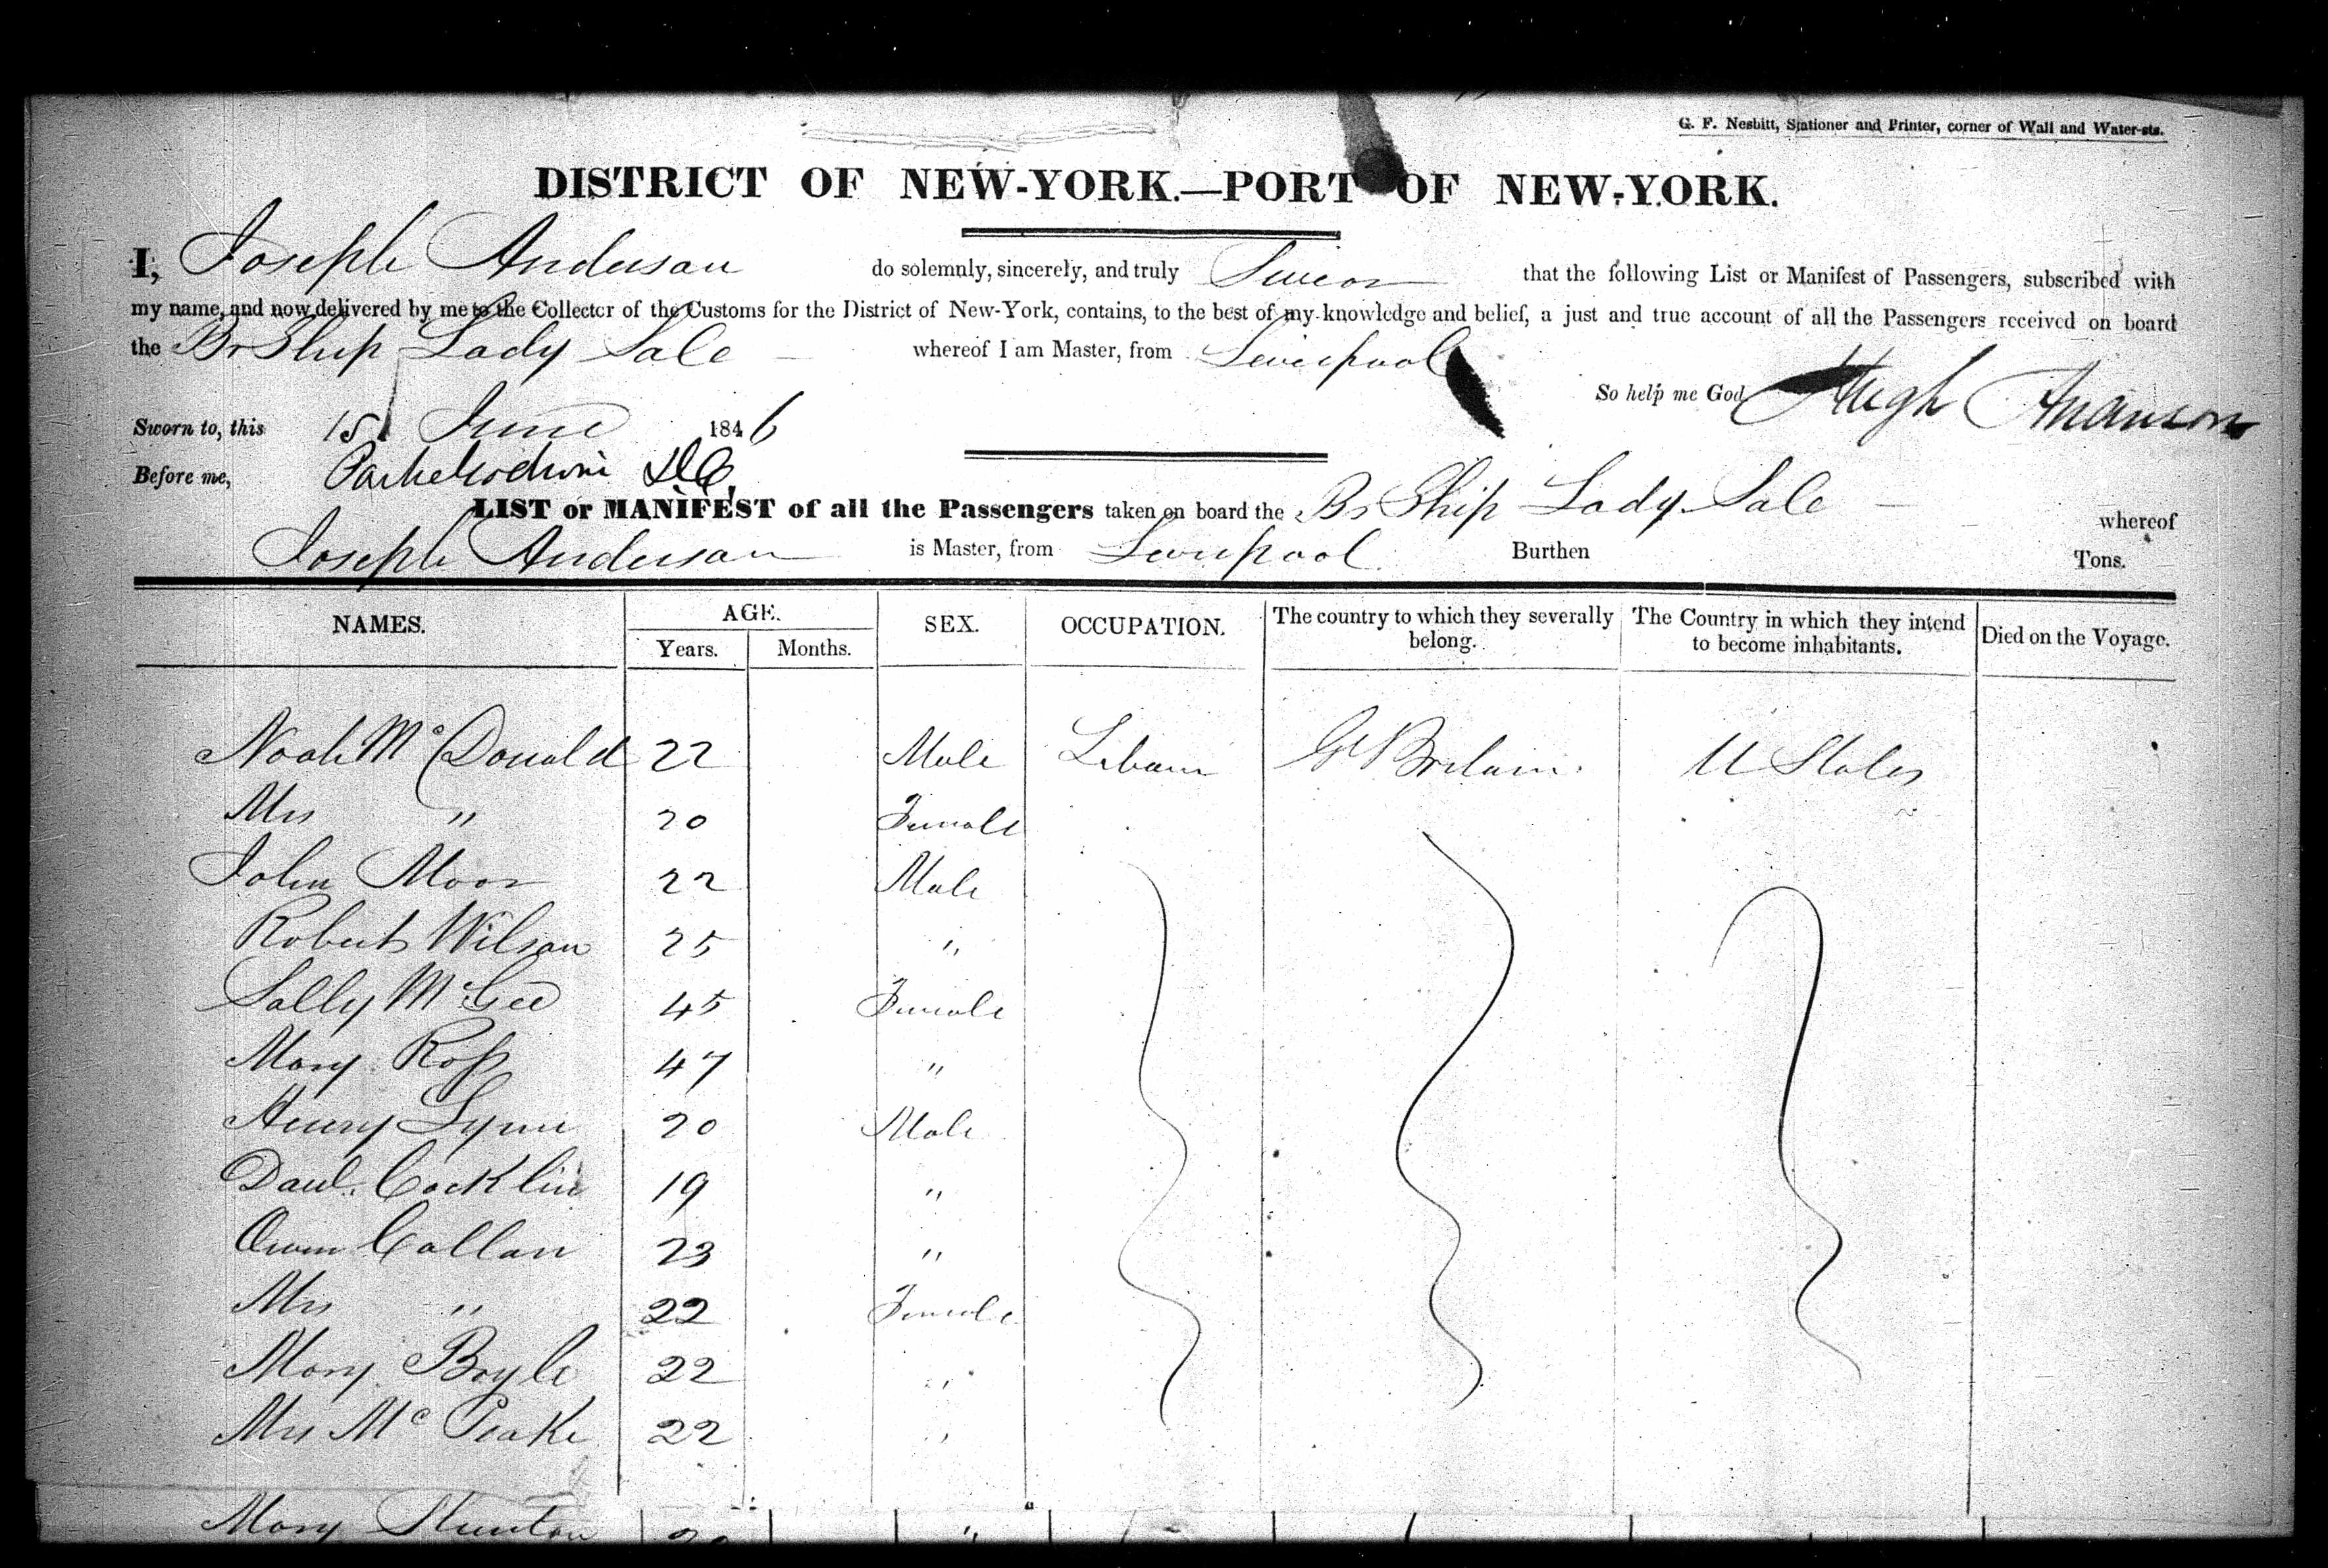 G. F. Nesbitt, Stationer and Printer, corner of Wall and Water-sts.
DISTRICT OF NEW-YORK.—PORT OF NEW-YORK.
I, Joseph Anderson do solemnly, sincerely, and truly Swear that the following List or Manifest of Passengers, subscribed with
my name, and now delivered by me to the Collector of the Customs for the District of New-York, contains, to the best of my knowledge and belief, a just and true account of all the Passengers received on board
the Br Ship Lady Sale whereof I am Master, from Liverpool
So help me God Hugh
Sworn to, this 15 June 1846
Before me,
LIST or MANIFEST of all the Passengers taken on board the Br Ship Lady Sale whereof
Joseph Anderson is Master, from Liverpool Burthen Tons.
NAMES. AGE. SEX. OCCUPATION. The country to which they severally belong. The Country in which they intend to become inhabitants. Died on the Voyage.
Years. Months.
Noah Mc Donald 22 Male Labourer Gt Britain U States
Mrs " 20 Female
John Moor 22 Male
Robert Wilson 25 "
Sally McGee 45 Female
Mary Ross 47 "
Henry Lynn 20 Male
Danl. Cocklin 19 "
Owen Callan 23 "
Mrs " 22 Female
Mary Boyle 22 "
Mrs Mc Peake 22 "
Mary "